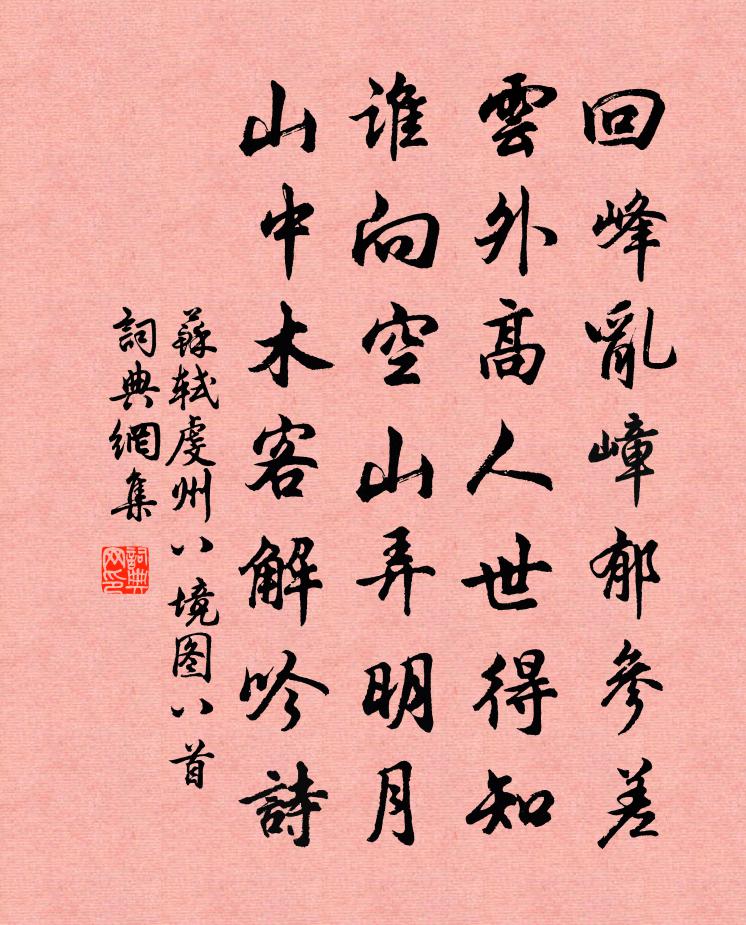 回峰亂嶂郁參差
雲外高人世得知
谁向空山弄明月
山中木客解吟詩
蘇轼虔州八境图八首
詞典網集
詞典网印